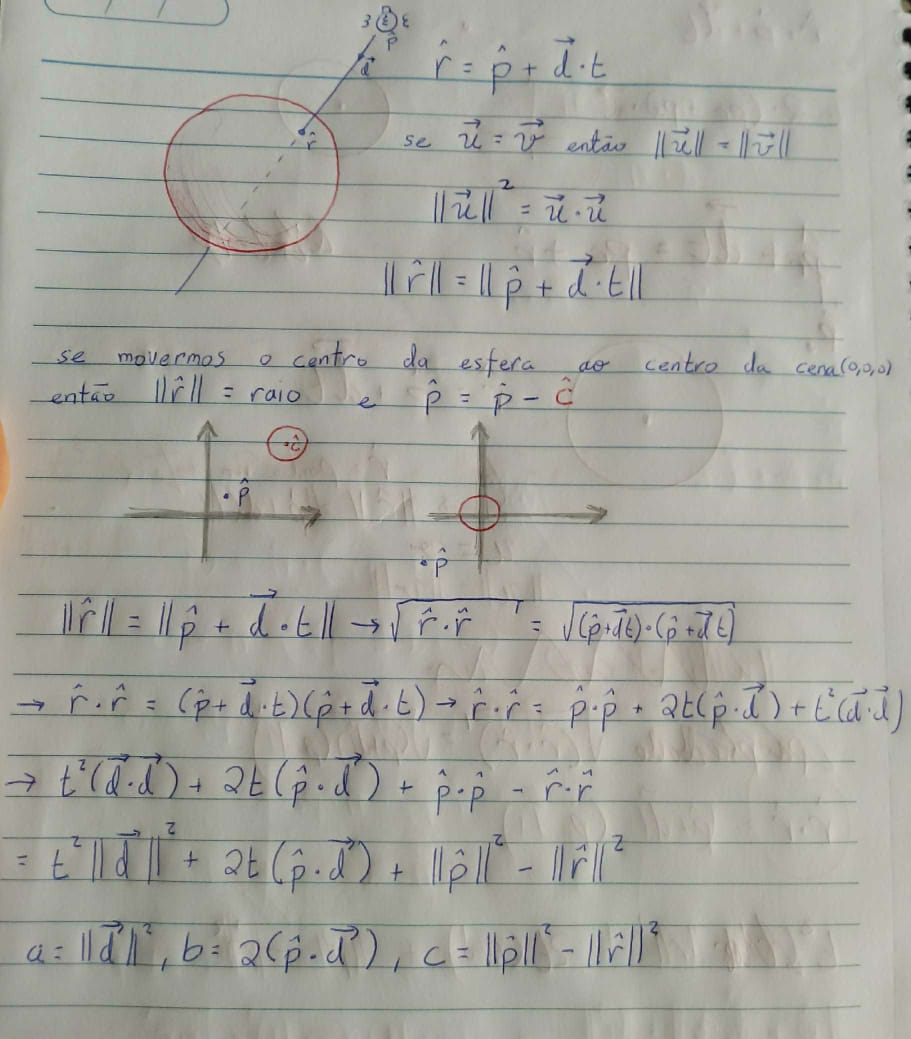 3 ε ε
p̂
d⃗
r̂
r̂ = p̂ + d⃗·t
se u⃗ = v⃗ então ||u⃗|| = ||v⃗||
||u⃗||² = u⃗·u⃗
||r̂|| = ||p̂ + d⃗·t||
se movermos o centro da esfera ao centro da cena(0,0,0)
então ||r̂|| = raio e p̂ = p̂ - ĉ
ĉ
p̂
p̂
||r̂|| = ||p̂ + d⃗·t|| → √(r̂·r̂) = √((p̂+d⃗t)·(p̂+d⃗t))
→ r̂·r̂ = (p̂+d⃗·t)(p̂+d⃗·t) → r̂·r̂ = p̂·p̂ + 2t(p̂·d⃗) + t²(d⃗·d⃗)
→ t²(d⃗·d⃗) + 2t(p̂·d⃗) + p̂·p̂ - r̂·r̂
= t²||d⃗||² + 2t(p̂·d⃗) + ||p̂||² - ||r̂||²
a = ||d⃗||², b = 2(p̂·d⃗), c = ||p̂||² - ||r̂||²